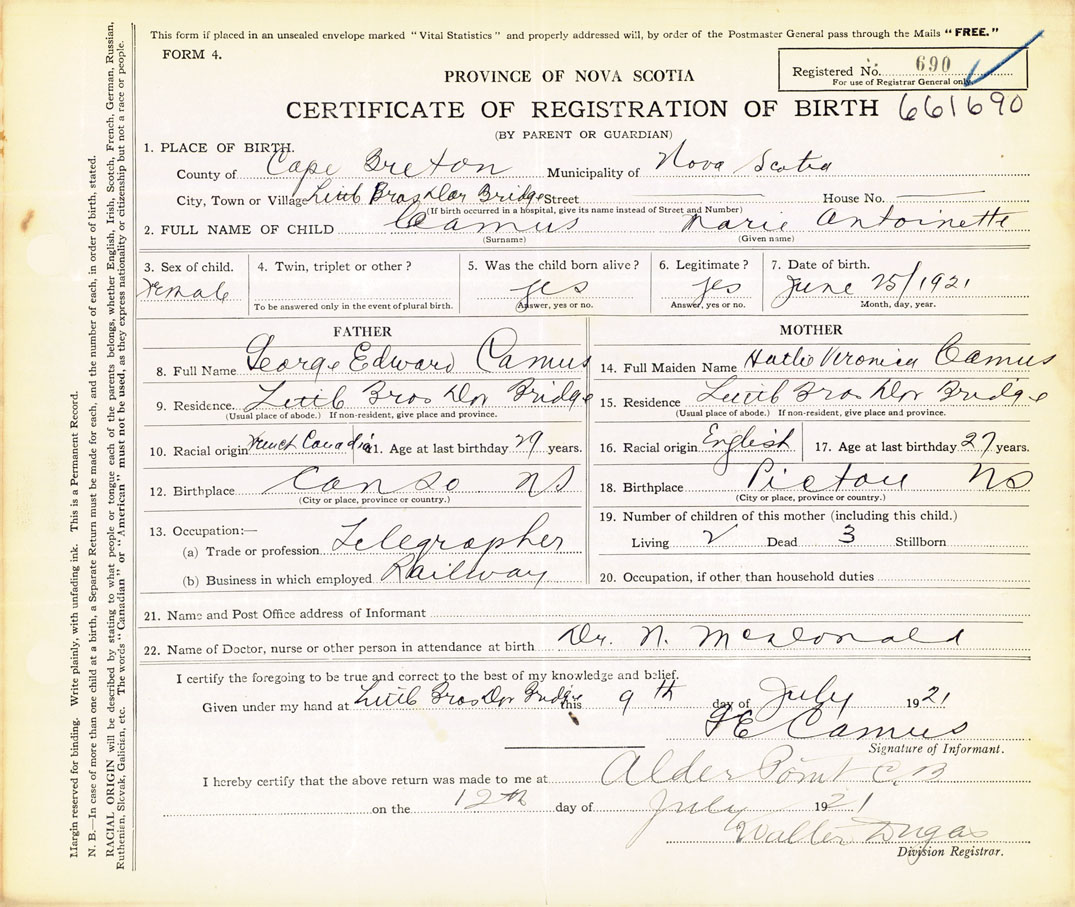 This form if placed in an unsealed envelope marked "Vital Statistics" and properly addressed will, by order of the Postmaster General pass through the Mails "FREE."
FORM 4.
Registered No. 690
For use of Registrar General only
PROVINCE OF NOVA SCOTIA
CERTIFICATE OF REGISTRATION OF BIRTH 661690
(BY PARENT OR GUARDIAN)
1. PLACE OF BIRTH.
County of Cape Breton Municipality of Nova Scotia
City, Town or Village Little Bras Dor Bridge Street House No.
(If birth occurred in a hospital, give its name instead of Street and Number)
2. FULL NAME OF CHILD Camus Marie Antoinette
(Surname) (Given name)
3. Sex of child. 4. Twin, triplet or other? 5. Was the child born alive? 6. Legitimate? 7. Date of birth.
Female yes yes June 25/1921
To be answered only in the event of plural birth. Answer, yes or no. Answer, yes or no. Month, day, year.
FATHER MOTHER
8. Full Name George Edward Camus 14. Full Maiden Name Veronica Camus
9. Residence. Little Bras Dor Bridge 15. Residence Little Bras Dor Bridge
(Usual place of abode.) If non-resident, give place and province. (Usual place of abode.) If non-resident, give place and province.
10. Racial origin French Canadian 11. Age at last birthday 29 years. 16. Racial origin English 17. Age at last birthday 27 years.
12. Birthplace Canso NS 18. Birthplace Pictou NS
(City or place, province or country.) (City or place, province or country.)
13. Occupation:— 19. Number of children of this mother (including this child.)
(a) Trade or profession Telegrapher Living 2 Dead 3 Stillborn
(b) Business in which employed Railway 20. Occupation, if other than household duties
21. Name and Post Office address of Informant
22. Name of Doctor, nurse or other person in attendance at birth Dr. N. McDonald
I certify the foregoing to be true and correct to the best of my knowledge and belief.
Given under my hand at Little Bras Dor Bridge this 9th day of July 1921
GE Camus
Signature of Informant.
I hereby certify that the above return was made to me at Alder Point C.B
on the 12th day of July 1921
Walter Dugas
Division Registrar.
Margin reserved for binding. Write plainly, with unfading ink. This is a Permanent Record.
N. B.—In case of more than one child at a birth, a Separate Return must be made for each, and the number of each, in order of birth, stated.
RACIAL ORIGIN will be described by stating to what people or tongue each of the parents belongs, whether English, Irish, Scotch, French, German, Russian,
Ruthenian, Slovak, Galician, etc. The words "Canadian" or "American" must not be used, as they express nationality or citizenship but not a race or people.